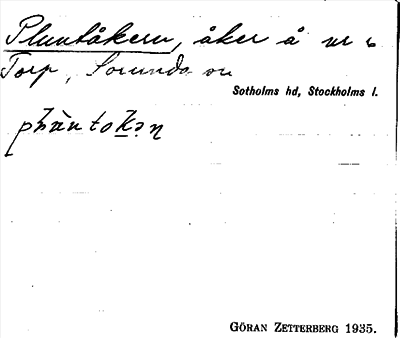 Pluntåkern, åker å nr 6
Torp, Sorunda sn
Sotholms hd, Stockholms l.
GÖRAN ZETTERBERG 1935.